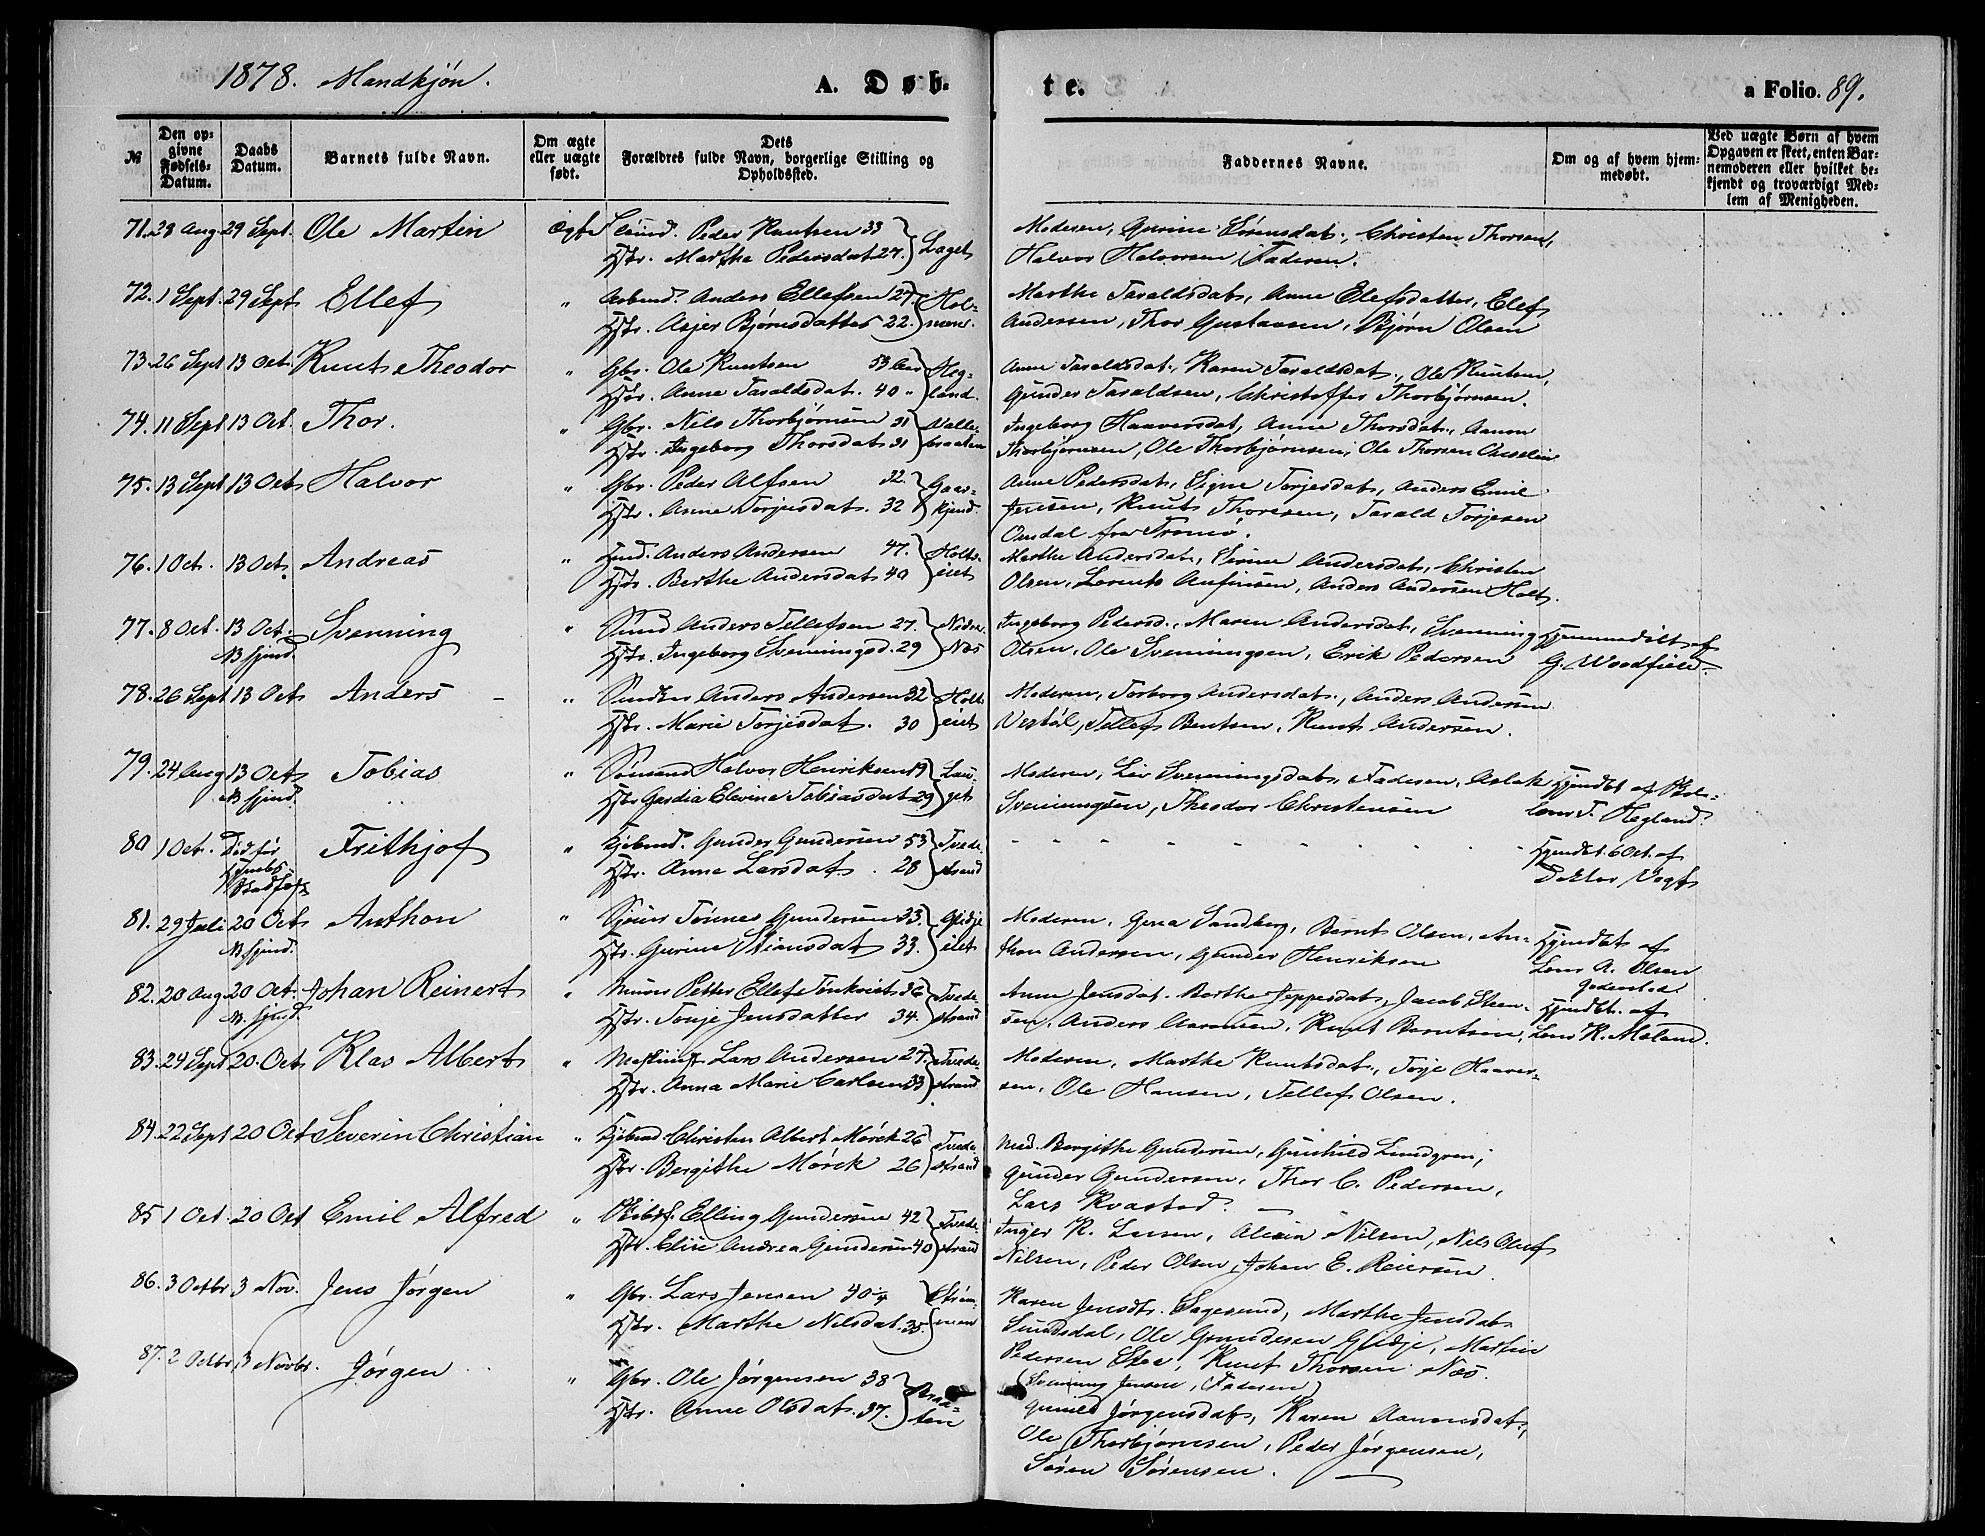 1878. Mandkjøn.
A. Døb-
te.
a Folio. 89.
№
Den op-
givne
Fødsels-
Datum.
Daabs
Datum.
Barnets fulde Navn.
Om ægte
eller uægte
født.
Dets
Forældres fulde Navn, borgerlige Stilling og
Opholdssted.
Faddernes Navne.
Om og af hvem hjem-
medøbt.
Ved uægte Børn af hvem
Opgaven er skeet, enten Bar-
nemoderen eller hvilket be-
kjendt og troværdigt Med-
lem af Menigheden.
71. 23 Aug. 29 Sept. Ole Martin ægte Peder Knutsen 33
Hstr. Marthe Pedersdat. 27. Laget
Moderen, Gurine Sørensdat., Christen Thorsen,
Halvor Halvorsen, Faderen.
72. 1 Sept. 29 Sept. Ellef " Arbmd. Anders Ellefsen 27.
Hstr. Asjer Bjørnsdatter 22. Hol-
mene.
Marthe Taraldsdat., Anne Elefsdatter, Elef
Andersen, Thor Gustavsen, Bjørn Olsen
73. 26 Sept 13 Oct. Knut Theodor " Gbr. Ole Knutsen 53 Aar
Hstr. Anne Taraldsdat. 40 " Heg-
land.
Anne Taraldsdat., Karen Taraldsdat., Ole Knutsen,
Gunder Taraldsen, Christoffer Thorbjørnsen.
74. 11 Sept 13 Oct. Thor. " Gbr. Nils Thorbjørnsen 31
Hstr. Ingeborg Thorsdat. 31 Valle-
braaten
Ingeborg Haaversdat, Anne Thorsdat., Aanon
Thorbjørnsen, Ole Thorbjørnsen, Ole Thorsen
75. 13 Sept 13 Oct. Halvor " Gbr. Peder Alfsen 32.
Hstr. Anne Torjusdat. 32 Gaas-
kjend.
Anne Pedersdat., Signe Torjesdat., Anders Emil
Jensen, Knut Thoresen, Tarald Torjesen
Omdal fra Tromø.
76. 1 Oct. 13 Oct. Andreas " Anders Andersen 47.
Hstr. Berthe Andersdat. 40 Holts-
eiet
Marthe Andersdat., Sirine Andersdat., Christen
Olsen, Lorents Anfinsen, Anders Andersen Holt.
77. 8 Oct. 13 Oct. Svenning " Anders Tellefsen 27.
NB hjmd. Hstr. Ingeborg Svenningsd. 29 Nedre
Næs
Ingeborg Pedersd., Maren Andersdat., Svenning
Olsen, Ole Svenningsen, Erik Pedersen
Hjemmedøbt af
G. Woodfield.
78. 26 Sept 13 Oct. Anders " Anders Andersen 32
Hstr. Marie Torjesdat. 30 Holt
eiet
Moderen, Torborg Andersdat., Anders Andersen
Vestøl, Tellef Bentsen, Knut Andersen.
79. 24 Aug 13 Oct. Tobias " Sømand Halvor Henriksen 19
NB hjmd. Hstr. Elevine Tobiasdat. 29 Lau-
get
Moderen, Liv Svenningsdat., Faderen, Aslak
Svenningsen, Theodor Christensen
Hjmdbt. af Sko-
lær. T. Hegland.
80 1 Oct. Død før Frithjof " Kjøbmd. Gunder Gundersen 53
Hstr. Anne Larsdat. 28 Tvede-
strand
Hjmdbt. 6 Oct. af
Doktor Vogt
81. 29 Juli 20 Oct. Anthon " Tønnes Gundersen 33.
NB hjmd. Hstr. Gurine Stiansdat. 33. Glidje
eiet
Moderen, Gena Sandberg, Bernt Olsen, An-
thon Andersen, Gunder Henriksen
Hjmdbt. af
Lens. A. Olsen
82. 20 Aug 20 Oct. Johan Reinert " Murer Petter Ellef Tønkvist 36
NB. hjmd. Hstr. Tonje Jensdatter 34. Tvede-
strand
Anne Jensdat. Berthe Jeppesdat., Jacob Steen-
sen, Anders Aaronsen, Knut Berntsen,
Hjmdbt. af
Lens K. Moland.
83. 24 Sept 20. Oct. Klas Albert " Lars Andersen 27.
Hstr. Anna Marie Carlsen 33 Tvede-
strand
Moderen, Marthe Knutsdat., Torje Haaver-
sen, Ole Hansen, Tellef Olsen.
84. 22 Sept 20 Oct. Severin Christian " Kjøbmd Christen Albert Mørck 26
Hstr. Bergithe Mørck 26 Tvede-
strand
Mad. Bergithe Gundersen, Gunhild Lundgren,
Gunder Gundersen, Thor C. Pedersen,
Lars Kvastad.
85 1 Oct. 20 Oct Emil Alfred " Skibsf. Elling Gundersen 42
Hstr. Elise Andrea Gundersen 40 Tvede-
strand
Inger K. Larsen, Alexia Nilsen, Nils Oluf
Nilsen, Peder Olsen, Johan E. Reiersen.
86. 3 Octbr 3 Nov. Jens Jørgen " Gbr. Lars Jensen 40
Hstr. Marthe Nilsdat. 35. Strøm-
men
Karen Jensdtr. Sagesund, Marthe Jensdat.
Sundsdal, Ole Gundersen Glidje, Martin
Pedersen Stea, Knut Thorsen Næs.
(Svenning Jensen, Faderen)
87. 2 Octbr, 3 Novbr. Jørgen " Gbr. Ole Jørgensen 38
Hstr. Anne Olsdat. 37. Braa-
ten
Gunild Jørgensdat., Karen Aanonsdat.,
Ole Thorbjørnsen, Peder Jørgensen,
Søren Sørensen.